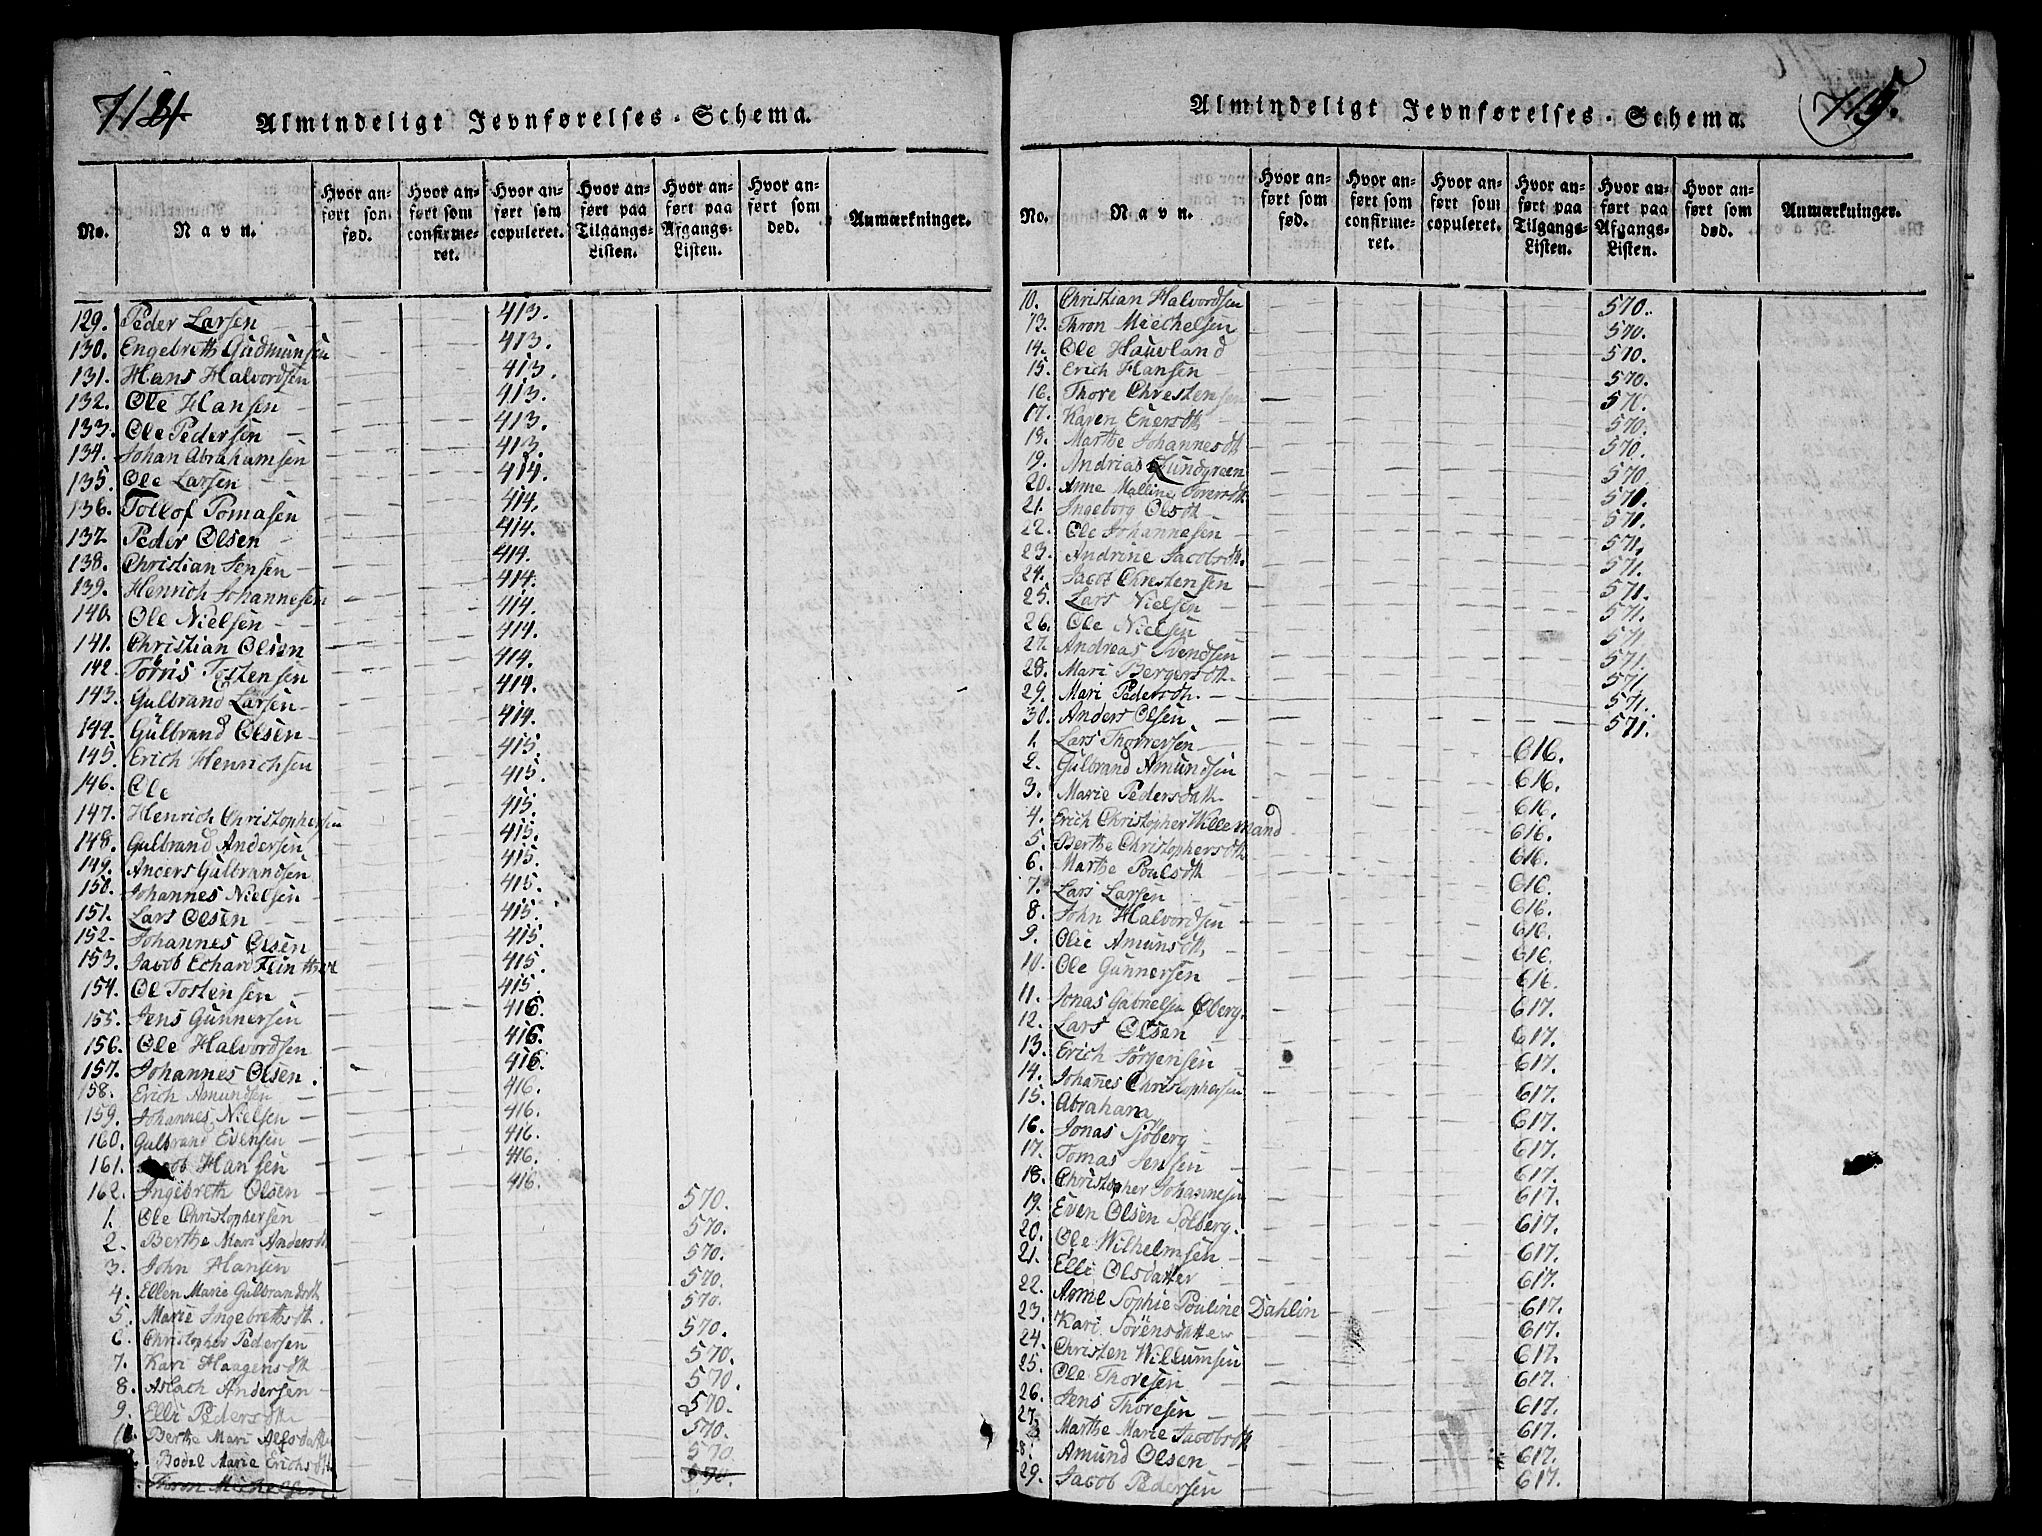 714
Almindeligt Jevnførelses-Schema.
No.
Navn.
Hvor an-
ført som
fød.
Hvor an-
ført som
confirme-
ret.
Hvor an-
ført som
copuleret.
Hvor an-
ført paa
Tilgangs-
Listen.
Hvor an-
ført paa
Afgangs-
Listen.
Hvor an-
ført som
død.
Anmærkninger.
129. Peder Larsen 413.
130. Engebreth Gudmunsen 413.
131. Hans Halvordsen 413.
132. Ole Hansen 413.
133. Ole Pedersen 413.
134. Johan Abrahamsen 413.
135. Ole Larsen 414.
136. Tollof Tomasen 414.
137. Peder Olsen 414.
138. Christian Jensen 414.
139. Henrich Johannesen 414.
140. Ole Nielsen 414.
141. Christian Olsen 414.
142. Törris Tostensen 414.
143. Gulbrand Larsen 414.
144. Gulbrand Olsen 414.
145. Erich Henrichsen 415.
146. Ole 415.
147. Henrich Christophersen 415.
148. Gulbrand Andersen 415.
149. Anders Gulbrandsen 415.
150. Johannes Nielsen 415.
151. Lars Olsen 415.
152. Johannes Olsen 415.
153. Jacob Echard 415.
154. Ol Tostensen 415.
155. Jens Gunnersen 416.
156. Ole Halvordsen 416.
157. Johannes Olsen 416.
158. Erich Amundsen 416.
159. Johannes Nielsen 416.
160. Gulbrand Evensen 416.
161. Jacob Hansen 416.
162. Ingebreth Olsen 416.
1. Ole Christophersen 570.
2. Berthe Mari Andersdt 570.
3. John Hansen 570.
4. Ellen Marie Gulbrandsdt 570.
5. Marie Ingebrethsdt. 570.
6. Christopher Pedersen 570.
7. Kari Haagensdt 570.
8. Aslach Andersen 570.
9. Elli Pedersdt 570.
Berthe Mari Alfsdatter 570.
Bodel Marie Erichsdt 570
Thron Michelsen 570.
715.
Almindeligt Jevnførelses-Schema.
No.
Navn.
Hvor an-
ført som
fød.
Hvor an-
ført som
confirme-
ret.
Hvor an-
ført som
copuleret.
Hvor an-
ført paa
Tilgangs-
Listen.
Hvor an-
ført paa
Afgangs-
Listen.
Hvor an-
ført som
død.
Anmærkninger.
10. Christian Halvordsen 570.
13. Thron Miechelsen 570.
14. Ole Hauvland 570.
15. Erich Hansen 570.
16. Thore Chrestensen 570.
17. Karen Enersdt 570.
18. Marthe Johannesdt 570.
19. Andrias Lundgreen 570.
20. Anne Malline Torersdt. 571.
21. Ingeborg Olsdt 571.
22. Ole Johannesen 571.
23. Andrine Jacobsdt. 571.
24. Jacob Chrestensen 571.
25. Lars Nielsen 571.
26. Ole Nielsen 571
27. Andreas Svendsen 571.
28. Mari Bergersdt. 571
29. Mari Pedersdt. 571.
30. Anders Olsen 571.
1. Lars Thorversen 616.
2. Gulbrand Amundsen 616.
3. Marie Pedersdatt. 616.
4. Erich Christopher Willemand 616.
5. Berthe Christophersdt. 616.
6. Marthe Poulsdt 616.
7. Lars Larsen 616.
8. John Halvordsen 616.
9. Olie Amunsdt. 616.
10. Ole Gunnersen 616.
11. Jonas Gabrielsen Öberg. 617.
12. Lars Olsen 617.
13. Erich Jörgensen 617.
14. Johannes Christophersen 617.
15. Abraham 617.
16. Jonas Sjöberg 617.
17. Tomas Jensen 617.
18. Christopher Johannesen 617.
19. Even Olsen Solberg. 617.
20. Ole Wilhelmsen 617.
21. Elli Olsdatter 617.
22. Anne Sophie Pouline Dahlin 617.
23. Kari Sörensdatter 617.
24. Christen Willumsen 617.
25. Ole Thoresen 617.
26. Jens Thoresen 617.
27. Marthe Marie Jacobsdt 617.
28. Amund Olsen 617.
29. Jacob Pedersen 617.